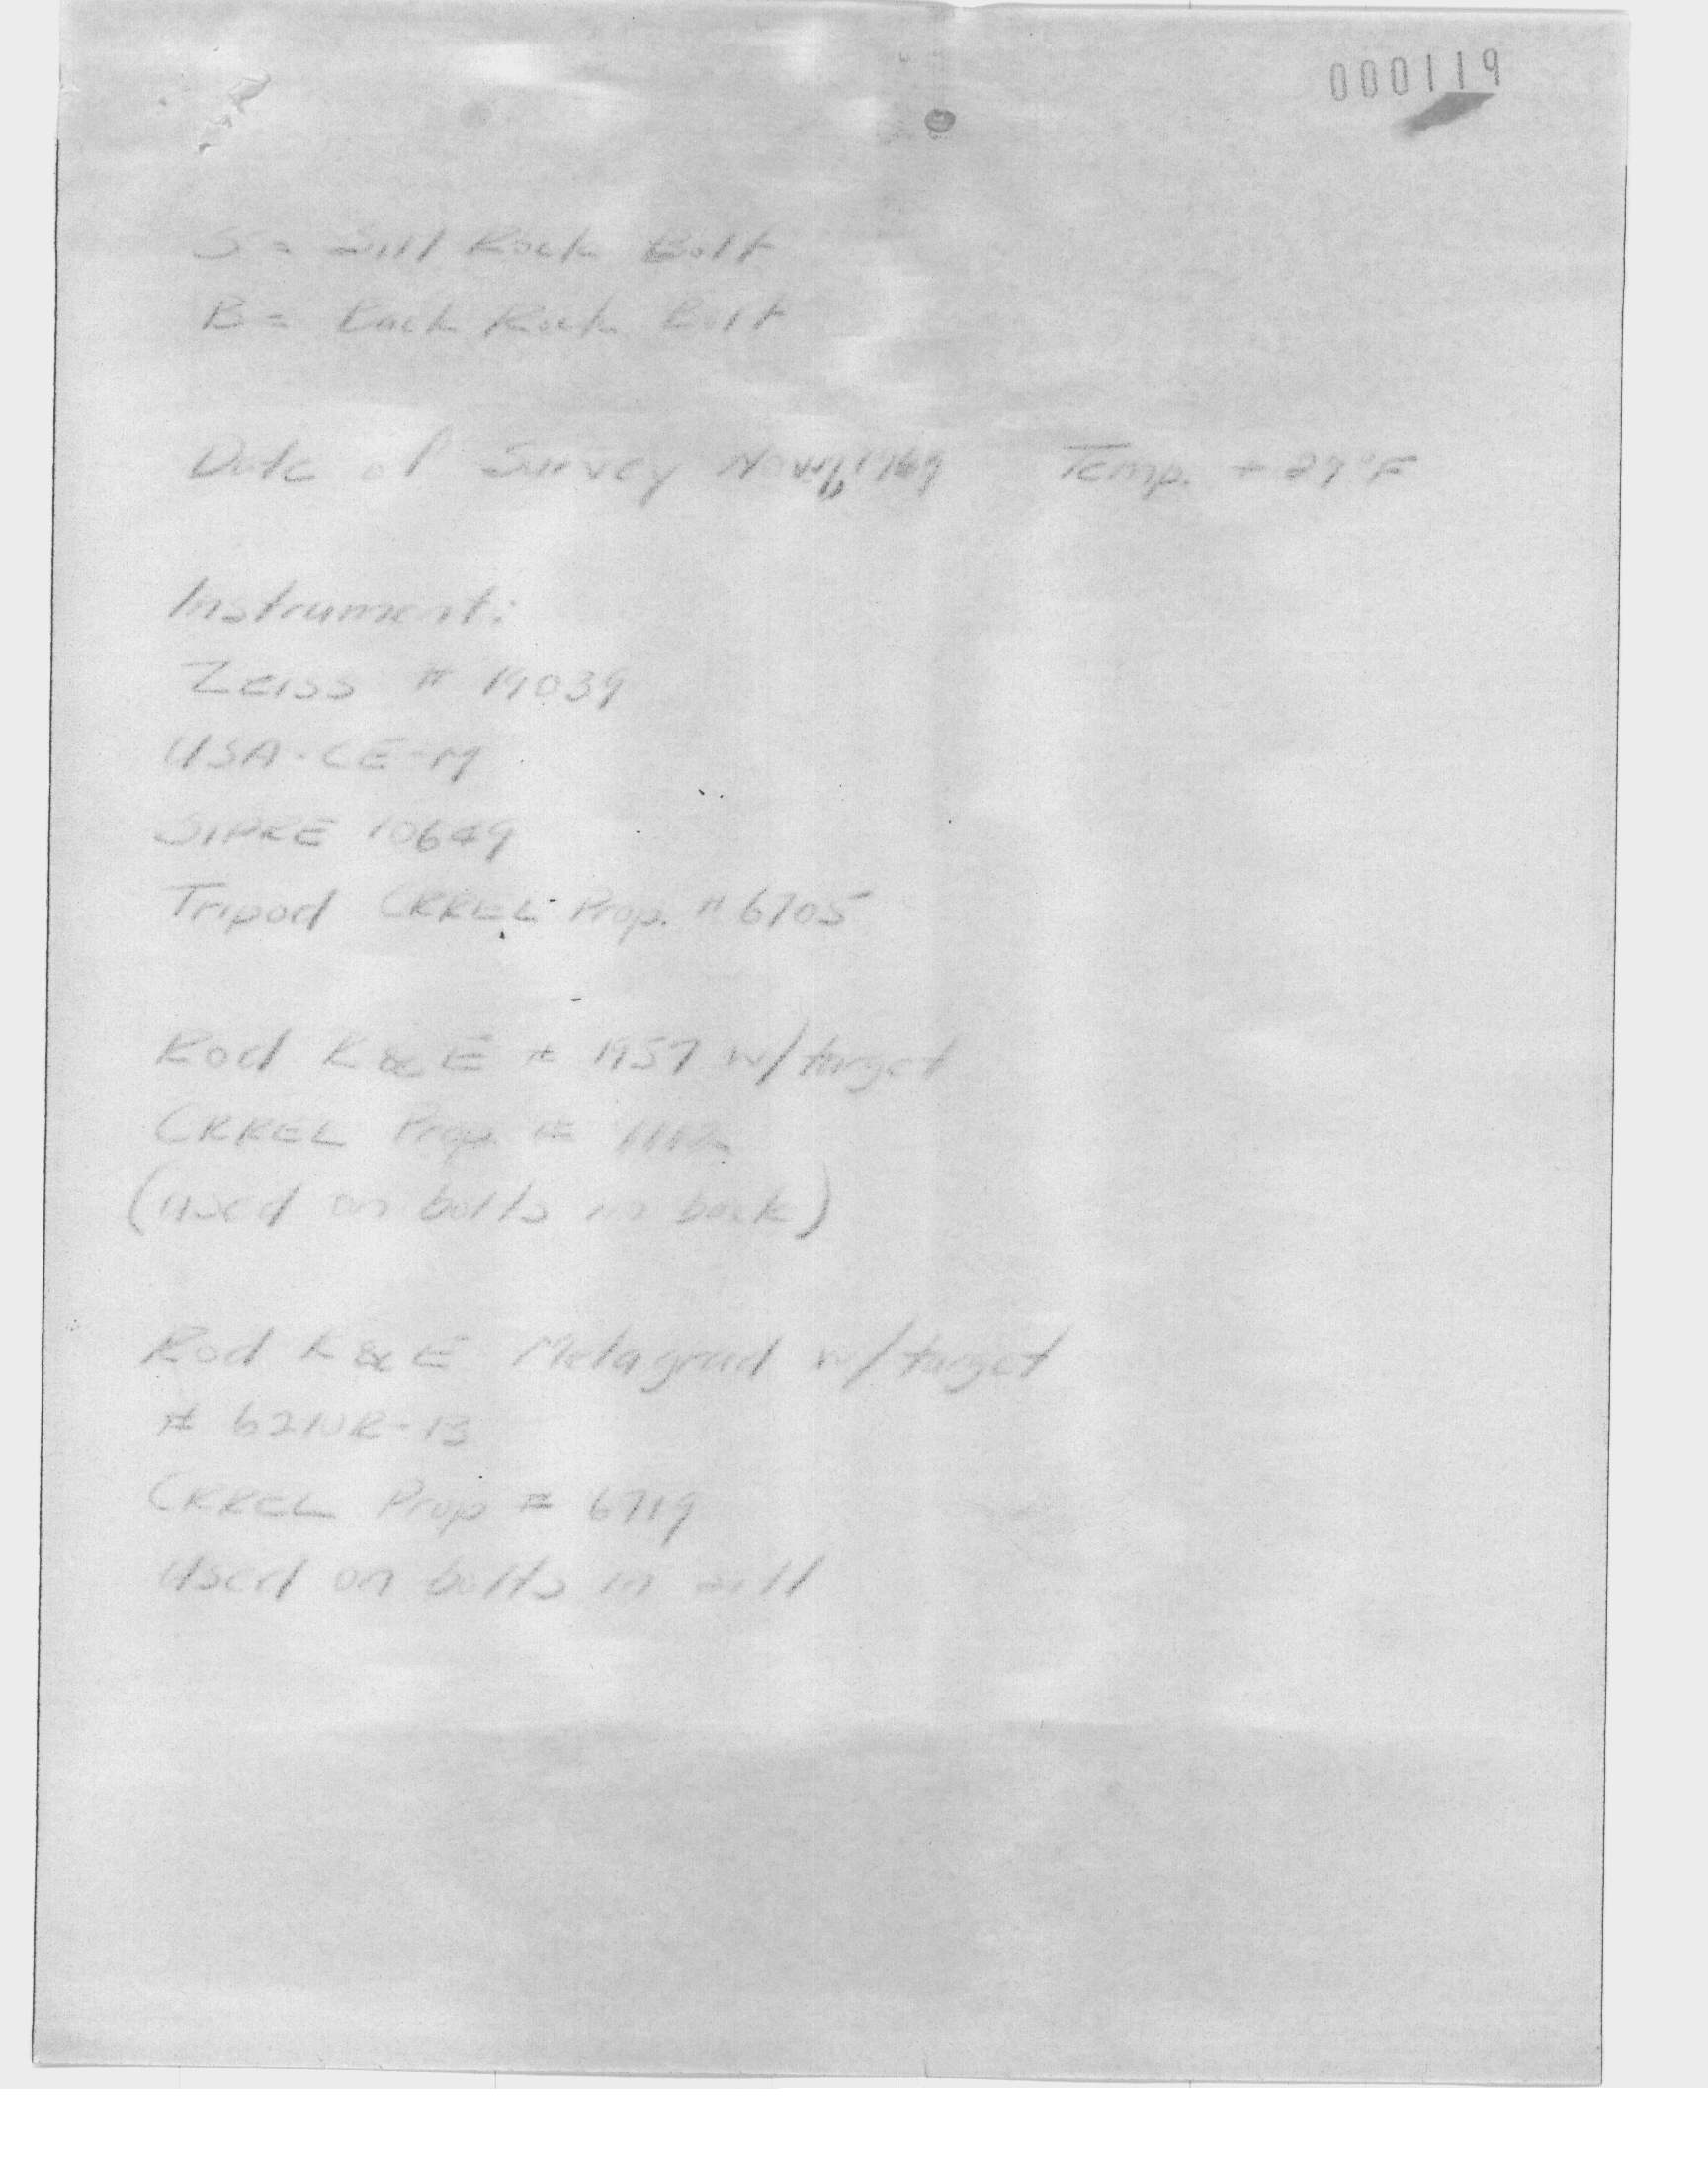 000119
S = Sill Rock Bolt
B = Back Rock Bolt
Date of Survey Nov 1969 Temp. + 29°F
Instrument:
Zeiss # 19039
USA-CE-M
SIPRE 10649
Tripod CRREL Prop. # 6705
Rod K & E # 1957 w/target
CRREL Prop. #
(used on bolts in back)
Rod K & E Metagrad w/target
# 6210R-13
CRREL Prop # 6719
Used on bolts in sill